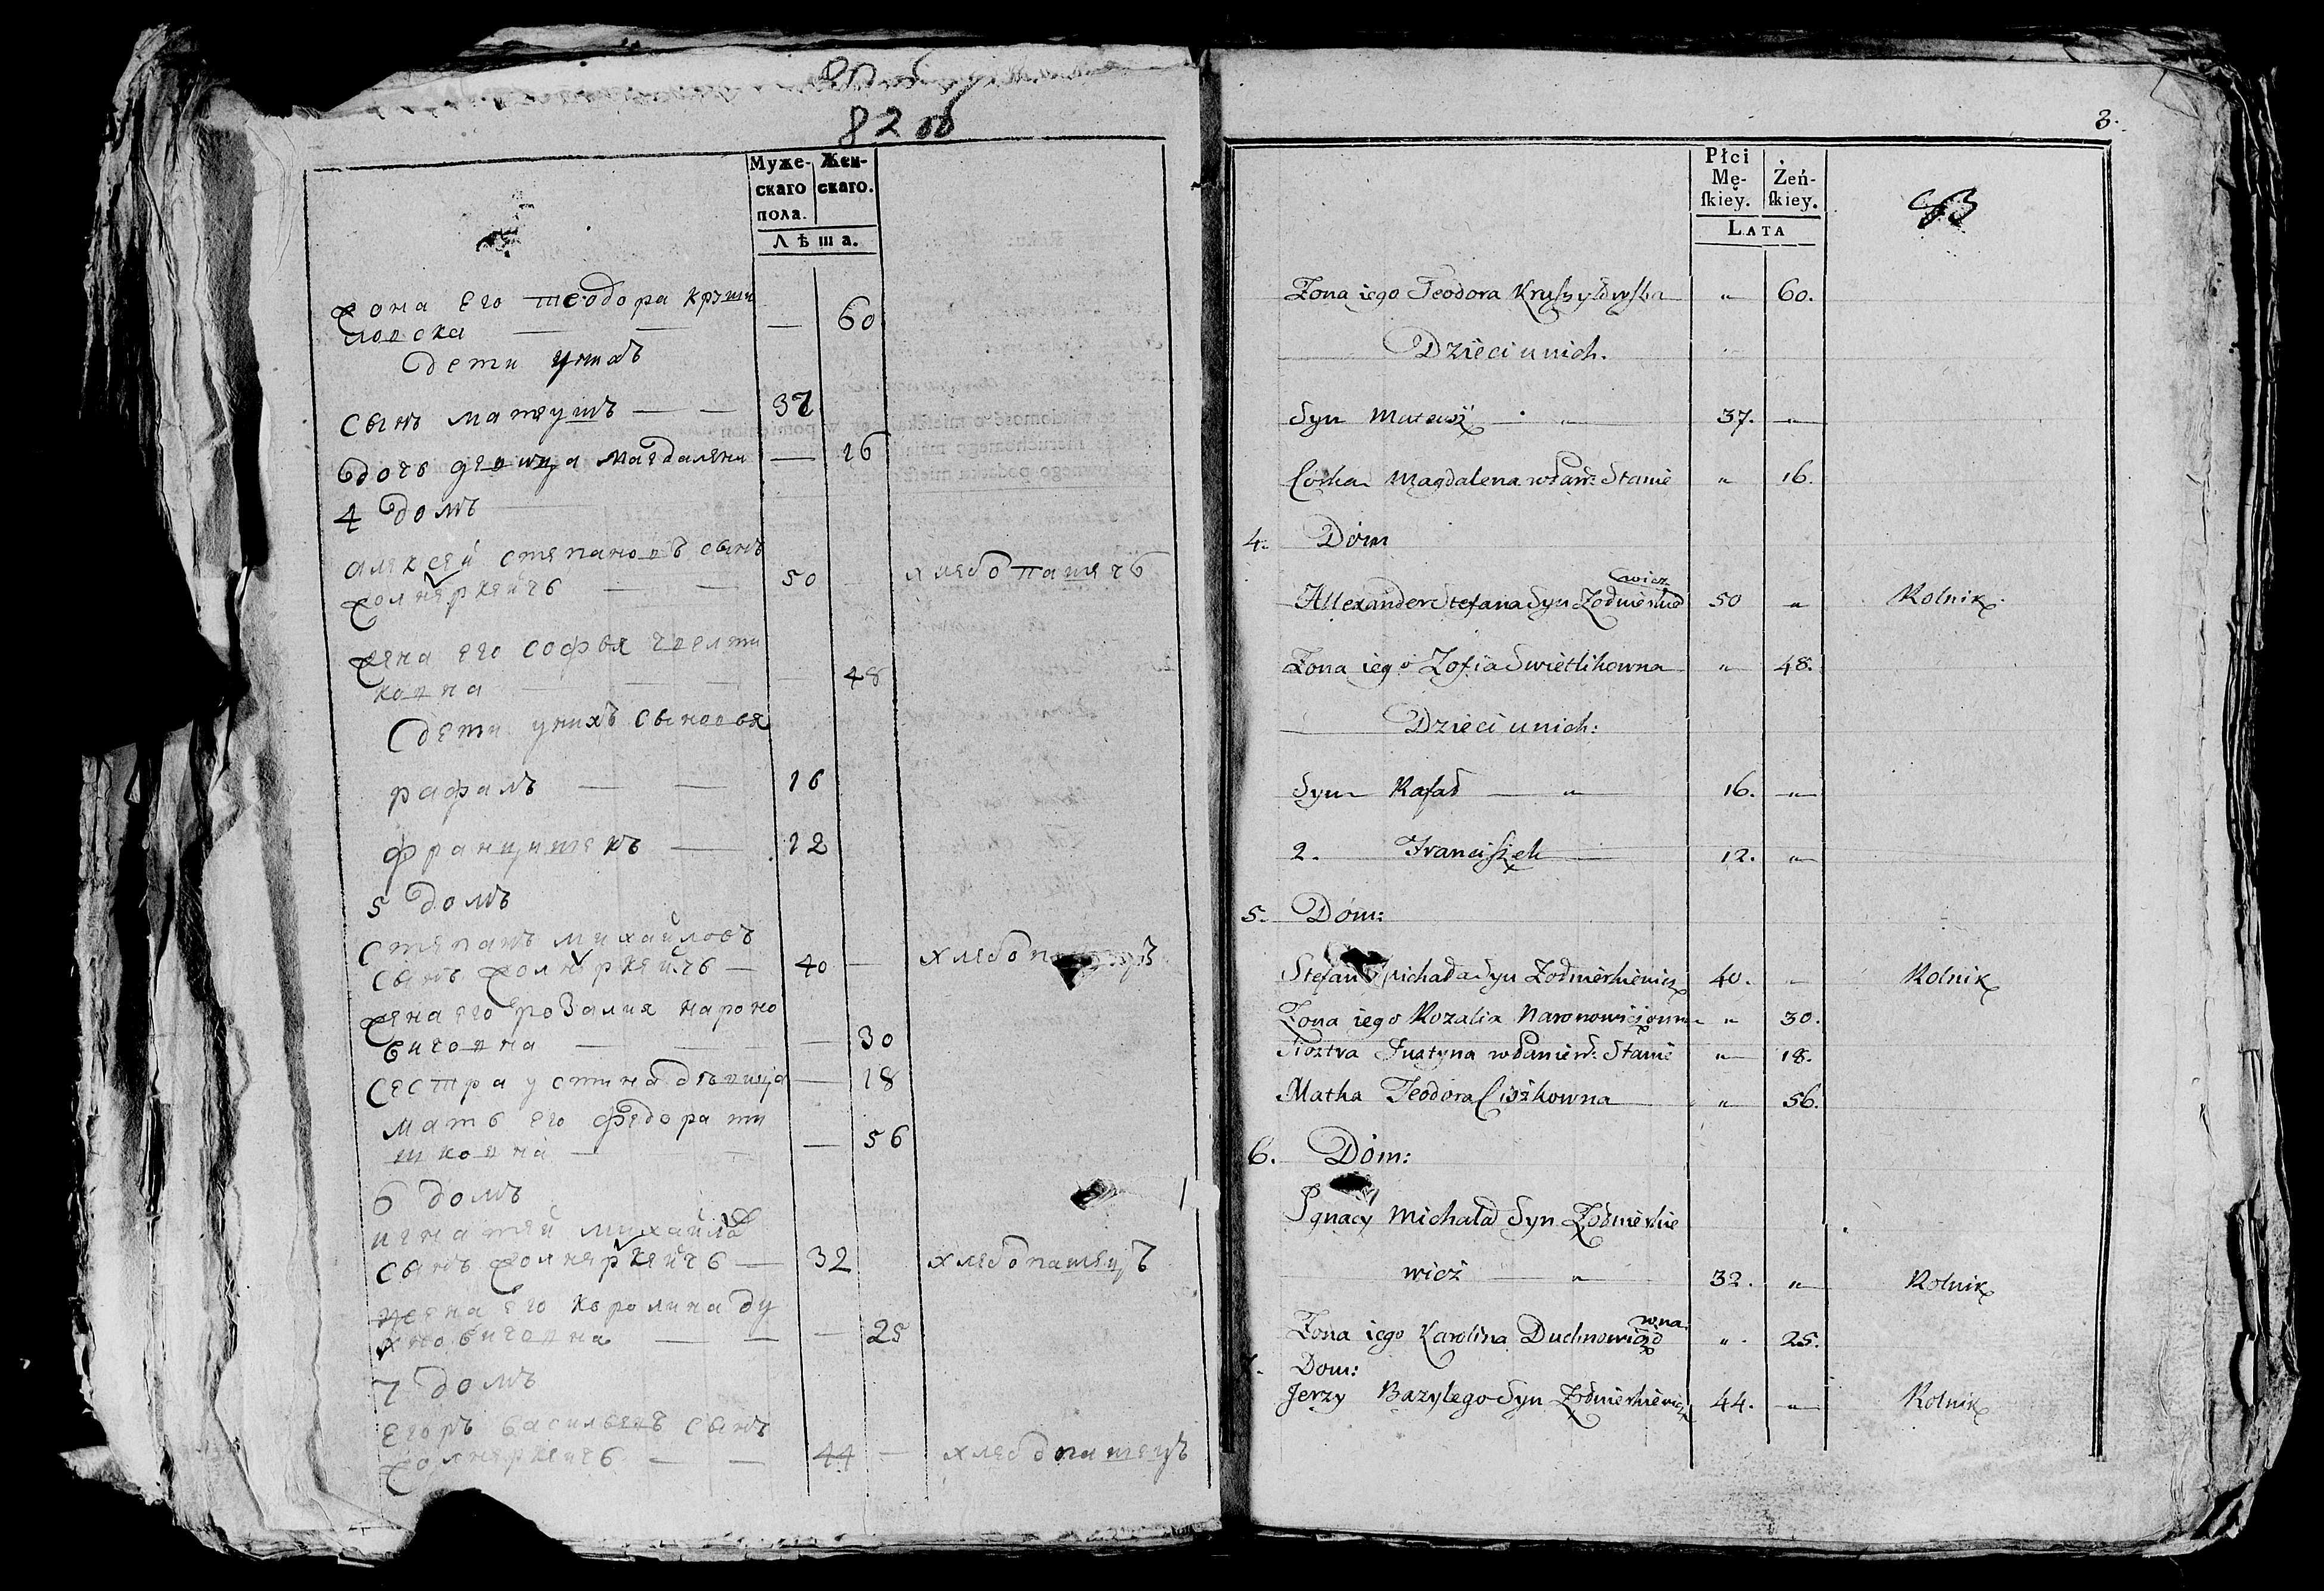 82 об
Муже- Жен-
скаго скаго.
пола.
Лѣта.
жона его теодора круши
ловска — — — 60
дети у них
сынъ матеушъ — — 37
дочь девица магдалена — 16
4 домъ
алексей степановъ сынъ
жолнеркевичь — — 50 — хлебопашечь
жена его софья
ковна — — — — 48
дети у нихъ сыновья
рафалъ — — 16
францишекъ — 12
5 домъ
степанъ михайловъ
сынъ жолнеркевичь — 40 — хлебопашецъ
жена его розалия нароно
вичовна — — — 30
сестра устина девица — 18
мать его федора ти
шковна — — — 56
6 домъ
игнатей михайла
сынъ жолнеркевичь — 32 хлебопашецъ
жена его королина ду
хновичовна — — — 25
7 домъ
егоръ васильевъ сынъ
жолнеркевичь — — 44 — хлебопашецъ
3.
Płci
Mę- Żeń-
ſkiey. ſkiey.
LATA
83
Żona iego Teodora Kruszyłowska " 60.
Dzieci u nich.
Syn Mateusz — " 37. "
Corka Magdalena w stanie " 16.
4. Dóm
Allexander Stefana Syn Żołnierkie
wicz 50 " Rolnik
Żona iego Zofia Swietlikowna " 48.
Dzieci u nich:
Syn Rafał — " 16. "
2. Franciszek — 12. "
5. Dóm:
Stefan Michała Syn Żołnierkiewicz 40. " Rolnik
Żona iego Rozalia Naronowiczowna " 30.
Siostra Justyna w panień: Stanie " 18.
Matka Teodora Ciszkowna " 56.
6. Dóm:
Ignacy Michała Syn Żołnierkie
wicz — " 32. " Rolnik
Żona iego Karolina Duchnowiczo
wna " 25.
Dom:
Jerzy Bazylego Syn Żołnierkiewicz 44. " Rolnik